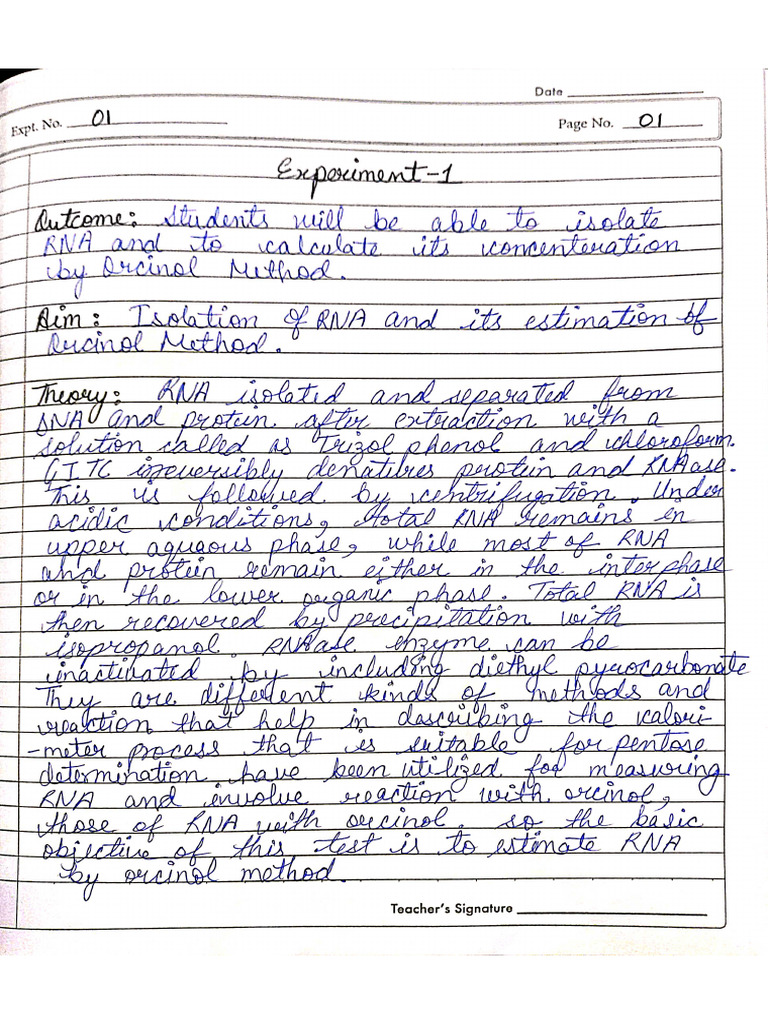 Date
Expt. No. 01
Page No. 01
Experiment-1
Outcome: Students will be able to isolate
RNA and to calculate its concenteration
by Orcinol Method.
Aim: Isolation of RNA and its estimation of
Orcinol Method.
Theory: RNA isolated and separated from
DNA and protein after extraction with a
solution called as Trizol phenol and chloroform.
GITC irreversibly denatures protein and RNAase.
This is followed by centrifugation. Under
acidic conditions, total RNA remains in
upper aquaous phase, while most of RNA
and protein remain either in the interphase
or in the lower organic phase. Total RNA is
then recovered by precipitation with
isopropanol. RNAase enzyme can be
inactivated by including diethyl pyrocarbonate
They are different kinds of methods and
reaction that help in describing the calori-
-meter process that is suitable for pentose
determination have been utilized for measuring
RNA and involve reaction with orcinol,
those of RNA with orcinol. so the basic
objective of this test is to estimate RNA
by orcinol method.
Teacher's Signature